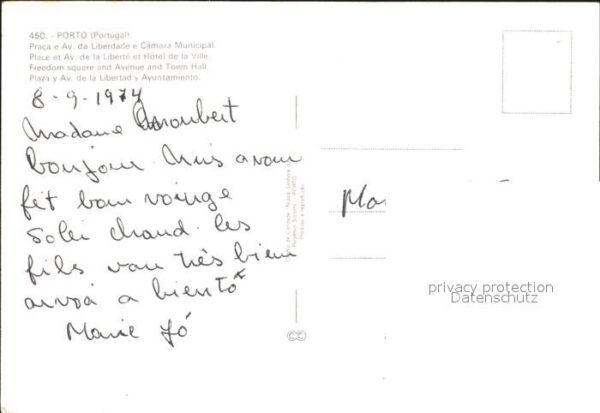 450. - PORTO (Portugal)
Praça e Av. da Liberdade e Câmara Municipal.
Place et Av. de la Liberté et Hôtel de la Ville.
Freedom square and Avenue and Town Hall.
Plaza y Av. de la Libertad y Ayuntamiento.
8-9-1974
Madame
Bonjour. Nuis avoun
fèt bom voiage
Solei chaud. les
fils von très bien
arvoa a biento
Marie Jó
Ma
privacy protection
Datenschutz